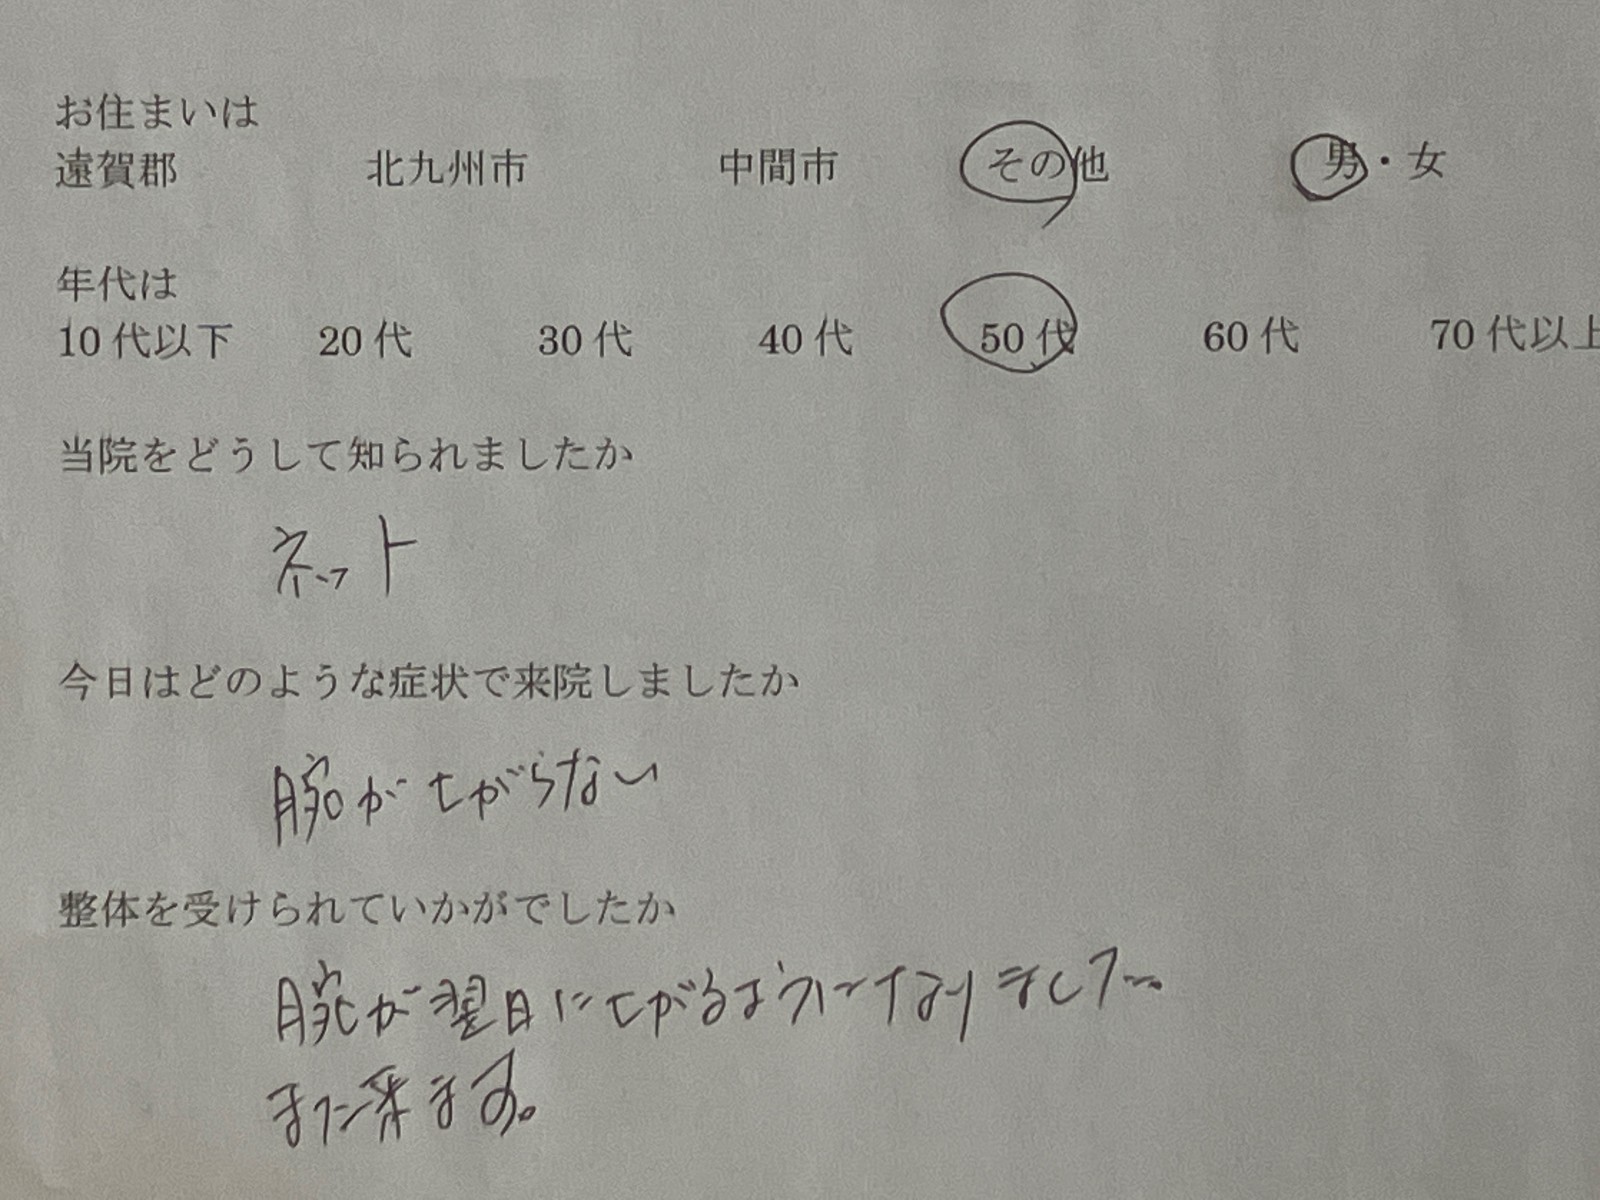 お住まいは
遠賀郡 北九州市 中間市 その他 男・女
年代は
10代以下 20代 30代 40代 50代 60代 70代以上
当院をどうして知られましたか
ネット
今日はどのような症状で来院しましたか
腕が上がらない
整体を受けられていかがでしたか
腕が翌日に上がるようになりました。
また来ます。